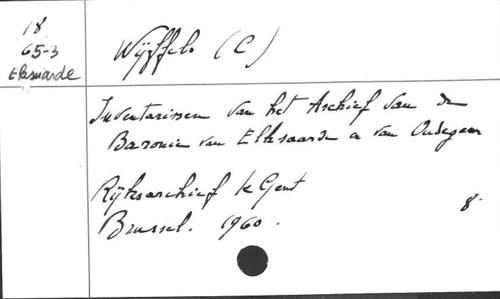 18
65-3
Eksaarde
Wijffels (C)
Inventarissen van het Archief van de
Baronie van Eksaarde en van Oudegem
Rijksarchief te Gent
Brussel. 1960.
8°